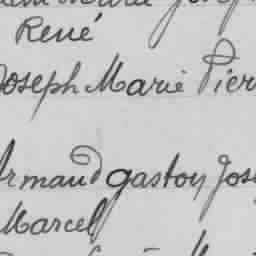 René
Joseph Marie Pier
Armand gaston Jos
Marcel